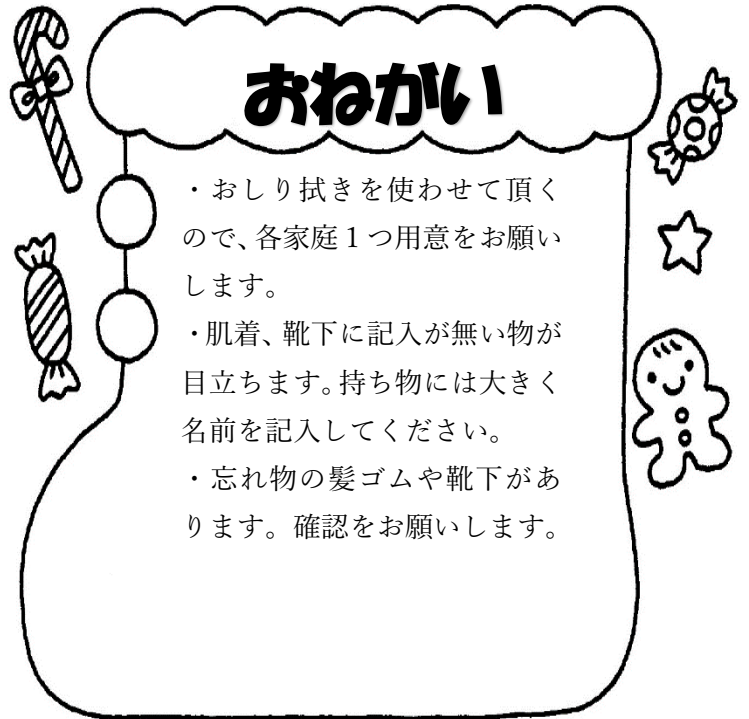 おねがい
・おしり拭きを使わせて頂く
ので、各家庭１つ用意をお願い
します。
・肌着、靴下に記入が無い物が
目立ちます。持ち物には大きく
名前を記入してください。
・忘れ物の髪ゴムや靴下があ
ります。確認をお願いします。